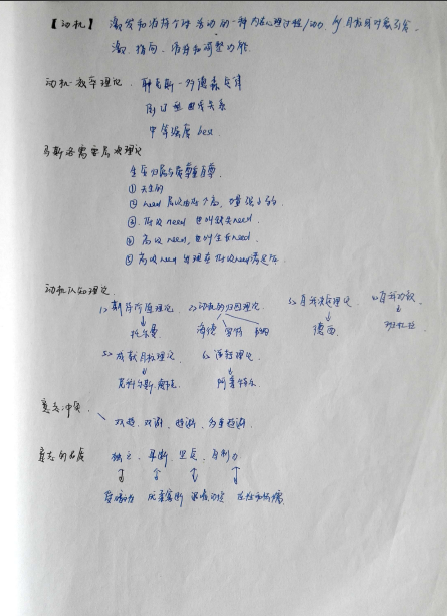 【动机】 激发和维持个体活动的一种内在心理过程/动力. 由目标或对象引发.
激. 指向. 维持和调整功能.
动机效率理论. 耶克斯-多德森定律
倒U型曲线关系
中等强度 best.
马斯洛需要层次理论
生安归属与爱尊自尊
① 天生的
② need 层次由低个高, 力量强到弱.
③ 低级need 也叫缺失need.
④ 高级need, 也叫生长need.
⑤ 高级need 出现在低级need满足后.
动机认知理论.
1> 期待价值理论. 2> 动机的归因理论. 3> 自我决定理论. 4> 自我功效
托尔曼 海德 罗特 韦纳 德西. 班杜拉
5> 成就目标理论. 6> 理论.
尼科尔斯. 德韦克 阿特
意志冲突.
双趋. 双避. 趋避. 多重趋避.
意志的品质 独立. 果断. 坚定. 自制力
受暗示 优柔寡断 任性和怯懦.